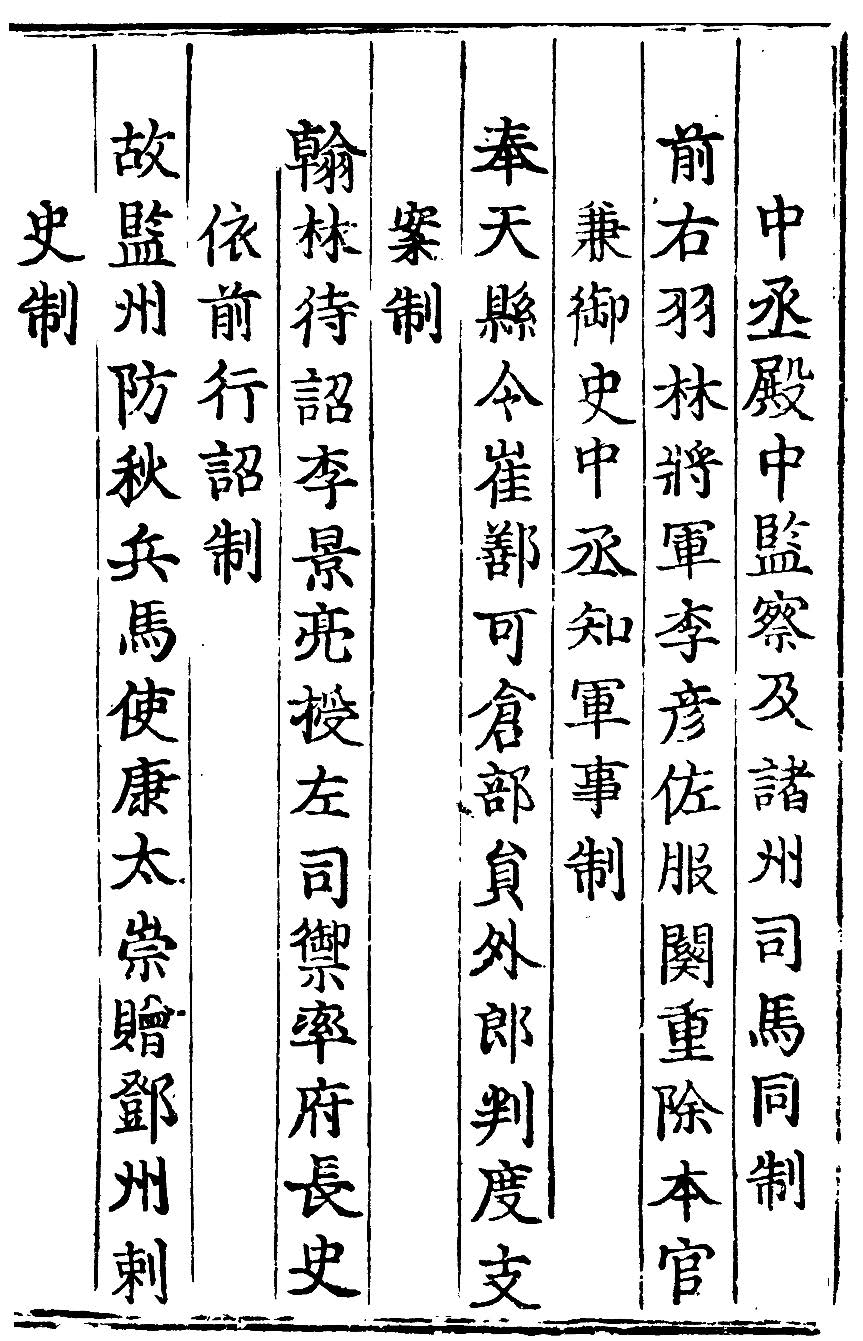 中丞殿中監察及諸州司馬同制
前右羽林將軍李彥佐服闋重除本官
兼御史中丞知軍事制
奉天縣令崔鄯可倉部貟外郎判度支
案制
翰林待詔李景亮授左司禦率府長史
依前行詔制
故監州防秋兵馬使康太崇贈鄧州刺
史制